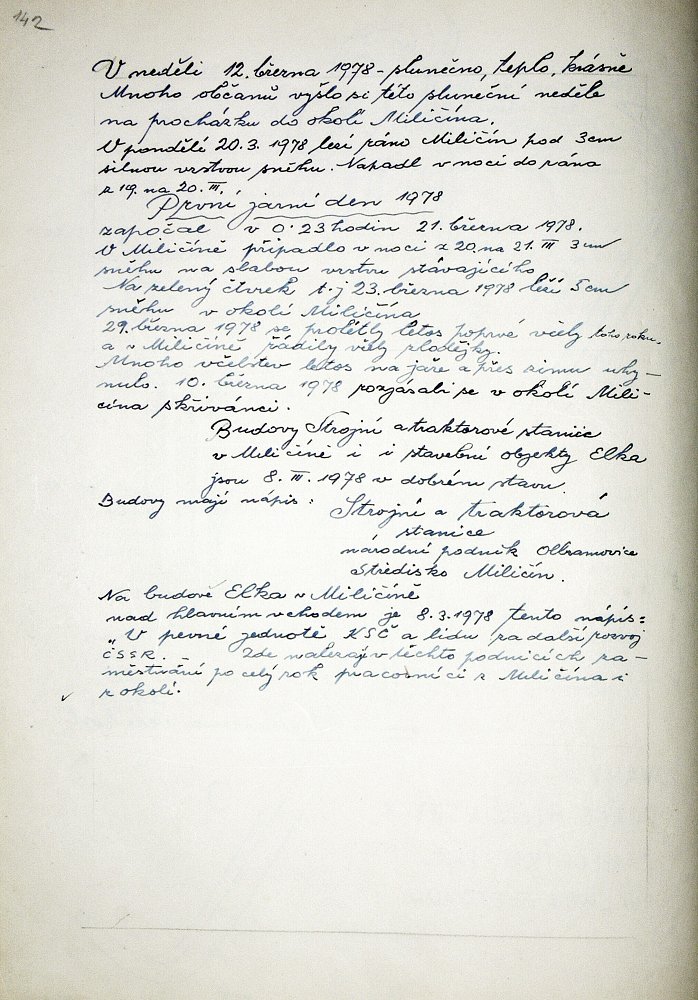 142
V neděli 12. března 1978 - slunečno, teplo, krásně
Mnoho občanů vyšlo si této sluneční neděle
na procházku do okolí Miličína.
V pondělí 20.3.1978 leží ráno Miličín pod 3cm
silnou vrstvou sněhu. Napadl v noci do rána
z 19. na 20. III.
První jarní den 1978
započal v 0.23 hodin 21. března 1978.
V Miličíně připadlo v noci z 20. na 21. III 3 cm
sněhu na slabou vrstvu stávajícího
Na zelený čtvrek t.j 23. března 1978 leží 5 cm
sněhu v okolí Miličína
29. března 1978 se prolétly letos poprvé včely toho roku.
a v Miličíně řádily včely zlodějky.
Mnoho včelstev letos na jaře a přes zimu uhy-
nulo. 10. března 1978 rozjásali se v okolí Mili-
čína skřivánci.
Budovy Strojní a traktorové stanice
v Miličíně i i stavební objekty Elka
jsou 8. III. 1978 v dobrém stavu.
Budovy mají nápis: Strojní a traktorová
stanice
národní podnik Olbramovice
Středisko Miličín.
Na budově Elka v Miličíně
nad hlavním vchodem je 8.3.1978 tento nápis:
„V pevné jednotě KSČ a lidu za další rozvoj
ČSSR. - Zde nalezají v těchto podnicích za-
městnání po celý rok pracovníci z Miličína i
z okolí.